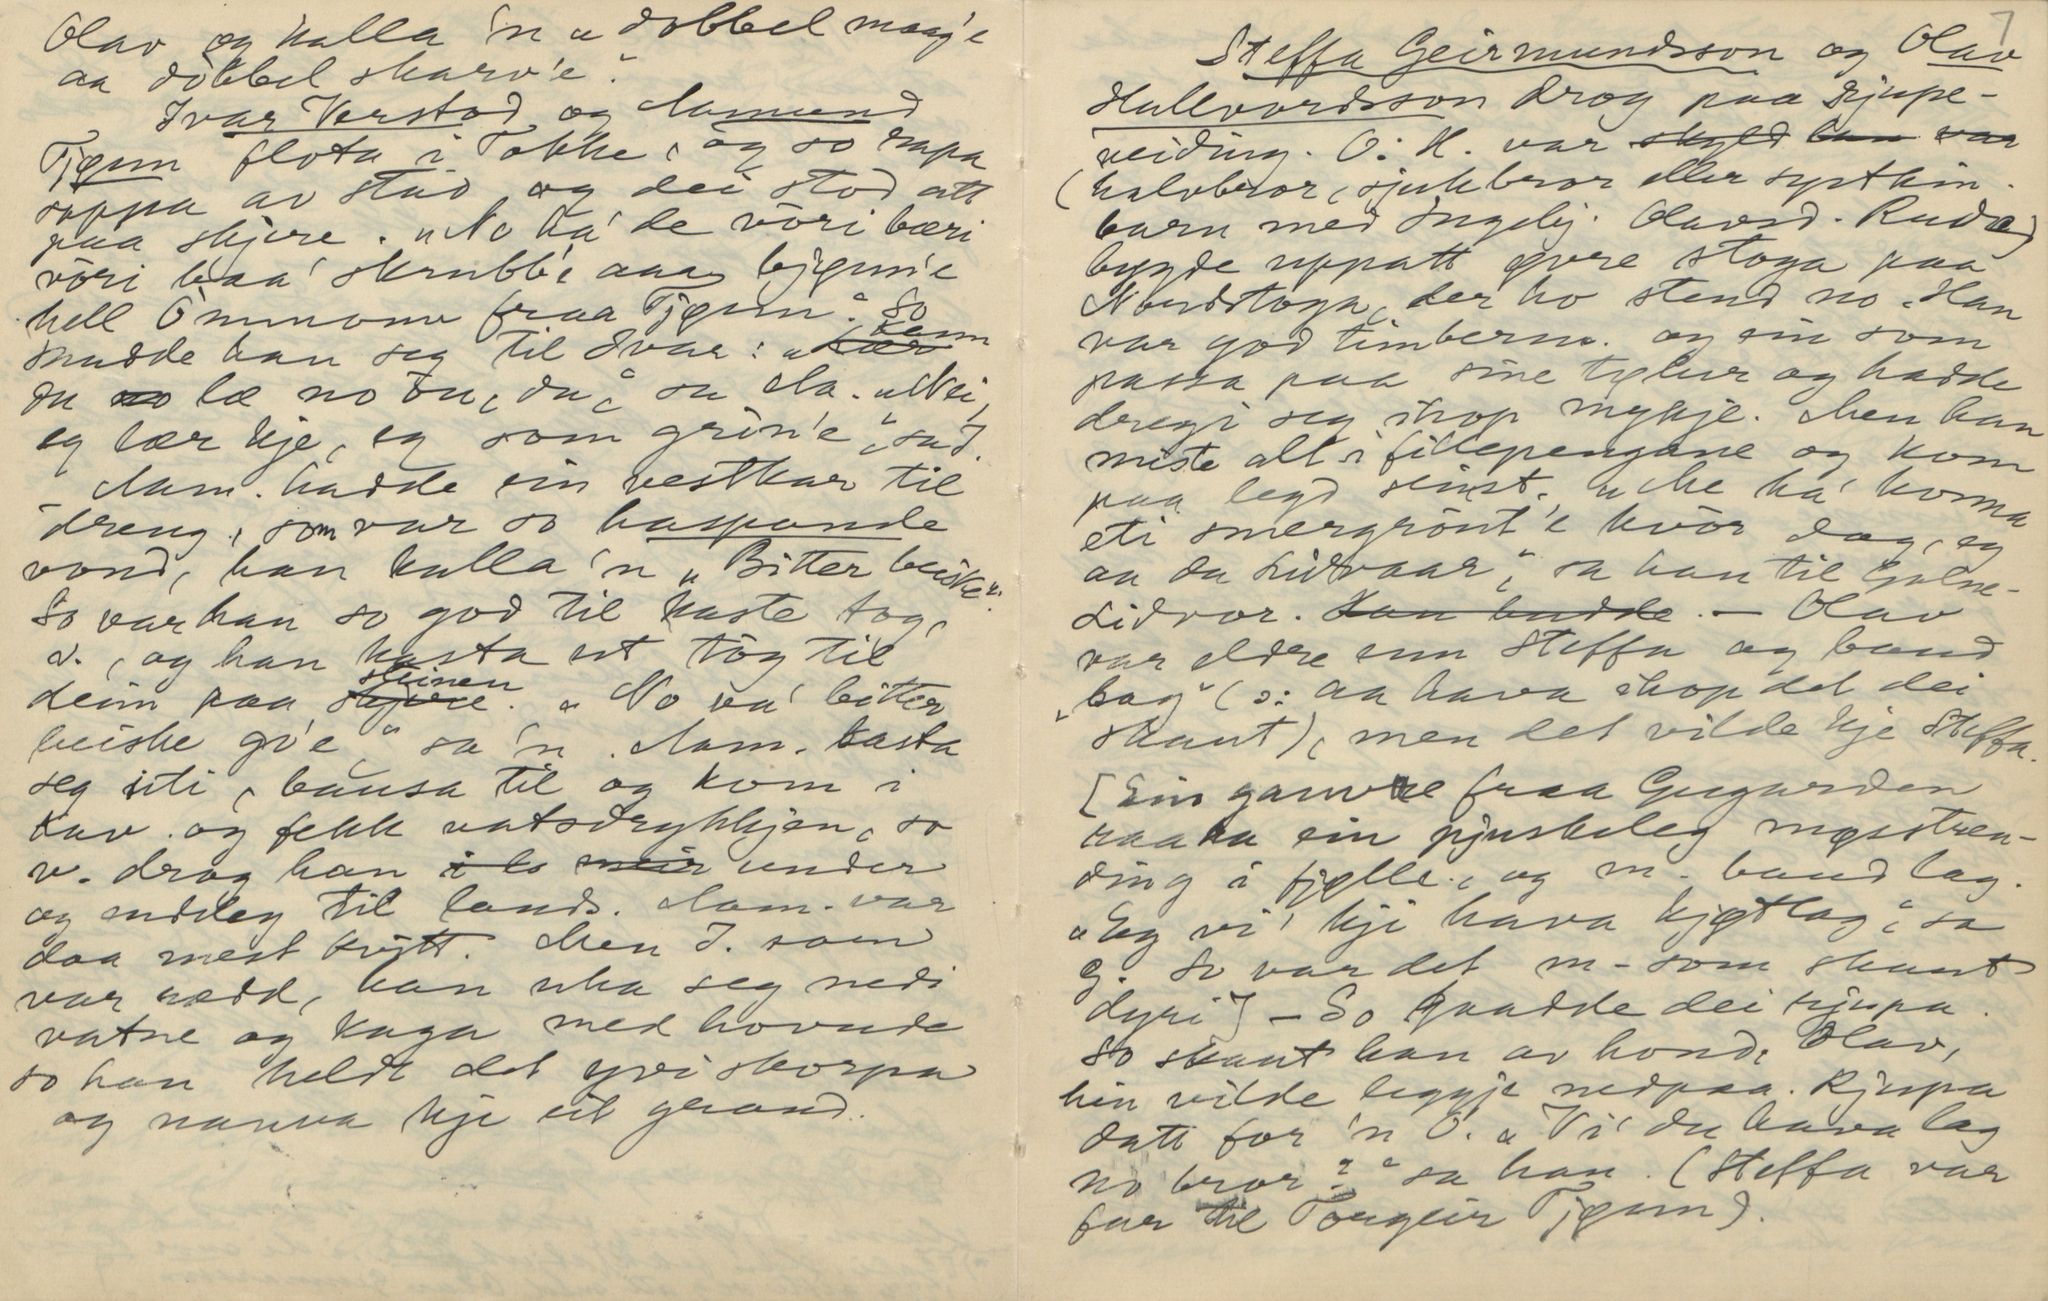 Olav og kalla 'n „dobbel mag'e
aa dobbel skarv'e".
Ivar Verstad og Aamund
Tjønn flota i Tokke, og so rapa
soppa av stad og dei stod att
paa skjere. „No ha' de vòri bæri
vòri baa' skrubb'e aaa bjønn'e
hell Òmmomo fraa Tjønn". So
snudde han seg til Ivar: „kann
du læ no òu, du," sa Aa. „Nei,
eg lær kje, eg som grin'e", sa I.
- Aam. hadde ein vestkar til
dreng, som var so haspande
vond, han kalla 'n „Bitter beiske".
So var han so god til kaste tog,
v., og han kasta ut tòg til
deim paa steinen. „No va' bitter
beiske go'e", sa 'n. Aam. kasta
seg uti, bausa til og kom i
kav og fekk vatsdrykkjen, so
v. drog han under
og uddeg til lands. Aam. var
daa mest kvitt. Men I. som
var rædd, han uka seg nedi
vatne og kaga med hovude
so han heldt det yvi skorpa
og nauva kje eit grand.
7
Steffa Geirmundsson og Olav
Hallvordsson drog paa rjupe-
veiding. O. H. var skyld han var
(halvbror, sjukbror eller systkin-
barn med Ingebj. Olavsd. Rudæ)
bygde uppatt øvre stoga paa
Nordstoga, der ho stend no. Han
var god timberm. og ein som
passa paa sine tylvur og hadde
dregi seg ihop mykje. Men han
miste alt i fillepengane og kom
paa legd seinst. „Me ha' komma
eti smergrònt'e hvòr dag, eg
aa du Lidvaar", sa han til Galne-
Lidvor. Han hadde. — Olav
var eldre enn Steffa og baud
„lag" (ɔ: aa hava ihop det dei
skaut), men det vilde kje Steffa.
[Ein gamle fraa Gugarden
raaka ein pjuskeleg møsstren-
ding i fjølle, og m. baud lag.
„Eg vi' kji hava kjøtlag", sa
g. So var det m- som skaut
dyri] — So gaadde dei rjupa.
So skaut han av hond, Olav,
hin vilde leggje nedpaa. Rjupa
datt for 'n O. „Vi' du hava lag
no bror?" sa han. (Steffa var
far til Torgeir Tjønn).